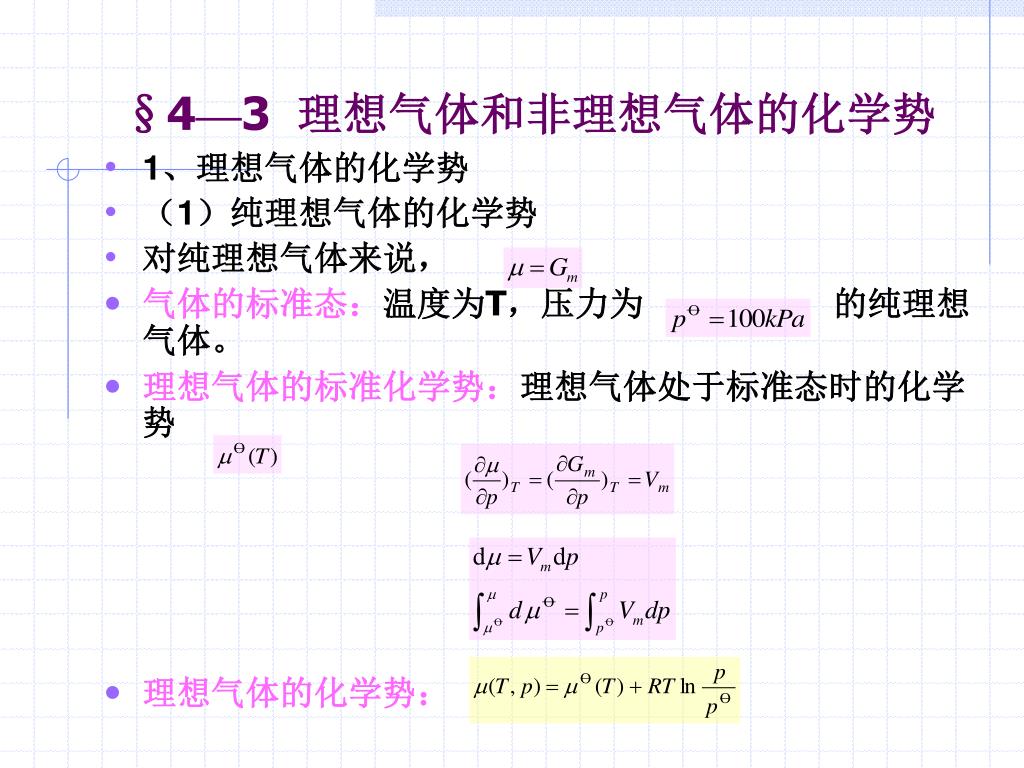 §4—3 理想气体和非理想气体的化学势
• 1、理想气体的化学势
• （1）纯理想气体的化学势
• 对纯理想气体来说， μ = Gₘ
• 气体的标准态：温度为T，压力为 p^Θ =100kPa 的纯理想
气体。
• 理想气体的标准化学势：理想气体处于标准态时的化学
势
μ^Θ (T)
(∂μ/∂p)_T = (∂G_m/∂p)_T = V_m
dμ = V_m dp
∫_{μ^Θ}^{μ} dμ^Θ = ∫_{p^Θ}^{p} V_m dp
• 理想气体的化学势： μ(T, p) = μ^Θ (T) + RT ln p/p^Θ